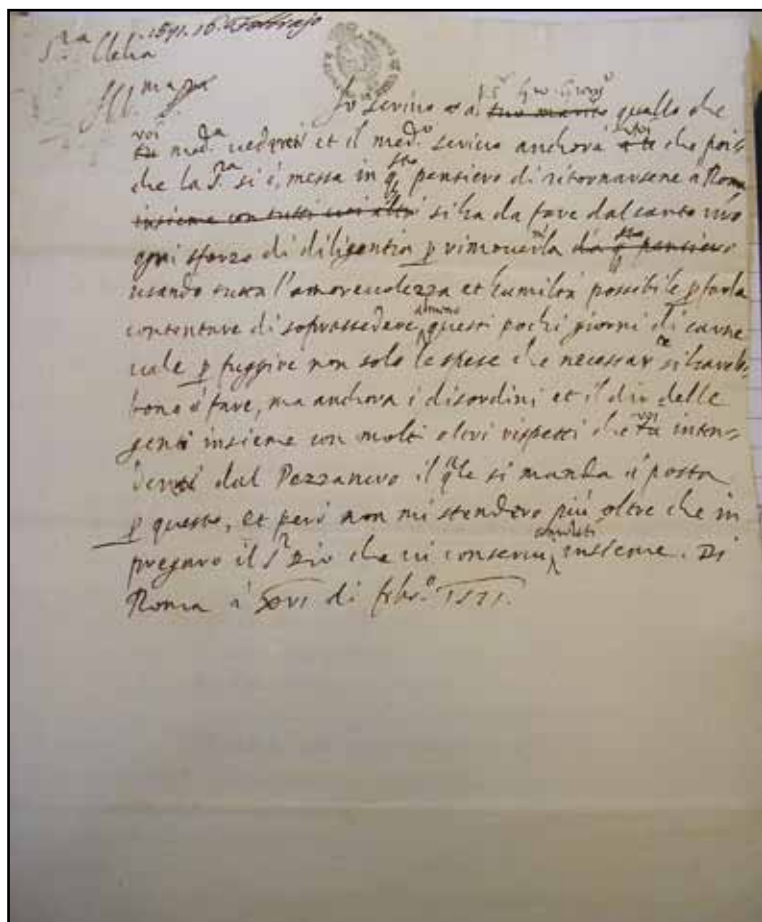 S.ra Clelia 1571. 16. Febbrajo
Ill.ma
Io scrivo a al suo marito quello che
voi tu med.a vedrete et il med.o scrivo anchora a te a voi che poi
che la S.ra si è, messa in q.sto pensiero di ritornarsene a Roma
insieme con tutti si ha da fare dal canto vro
ogni sforzo di diligentia p rimoverla da q.sto pensiero
usando tutta l'amorevolezza et humiltà possibile p farla
contentare di soprassedere almeno questi pochi giorni di carne
vale p fuggire non solo le spese che necessar.te si harebbono
à fare, ma anchora i disordini et il dir delle
genti insieme con molti altri rispetti che tu voi inten-
derete dal Pezzanero il q.le si manda à posta
p questo, et però non mi stenderò più oltre che in
pregare il S.r Dio che vi conservi insieme. Di
Roma à XVI di febr.o 1571.